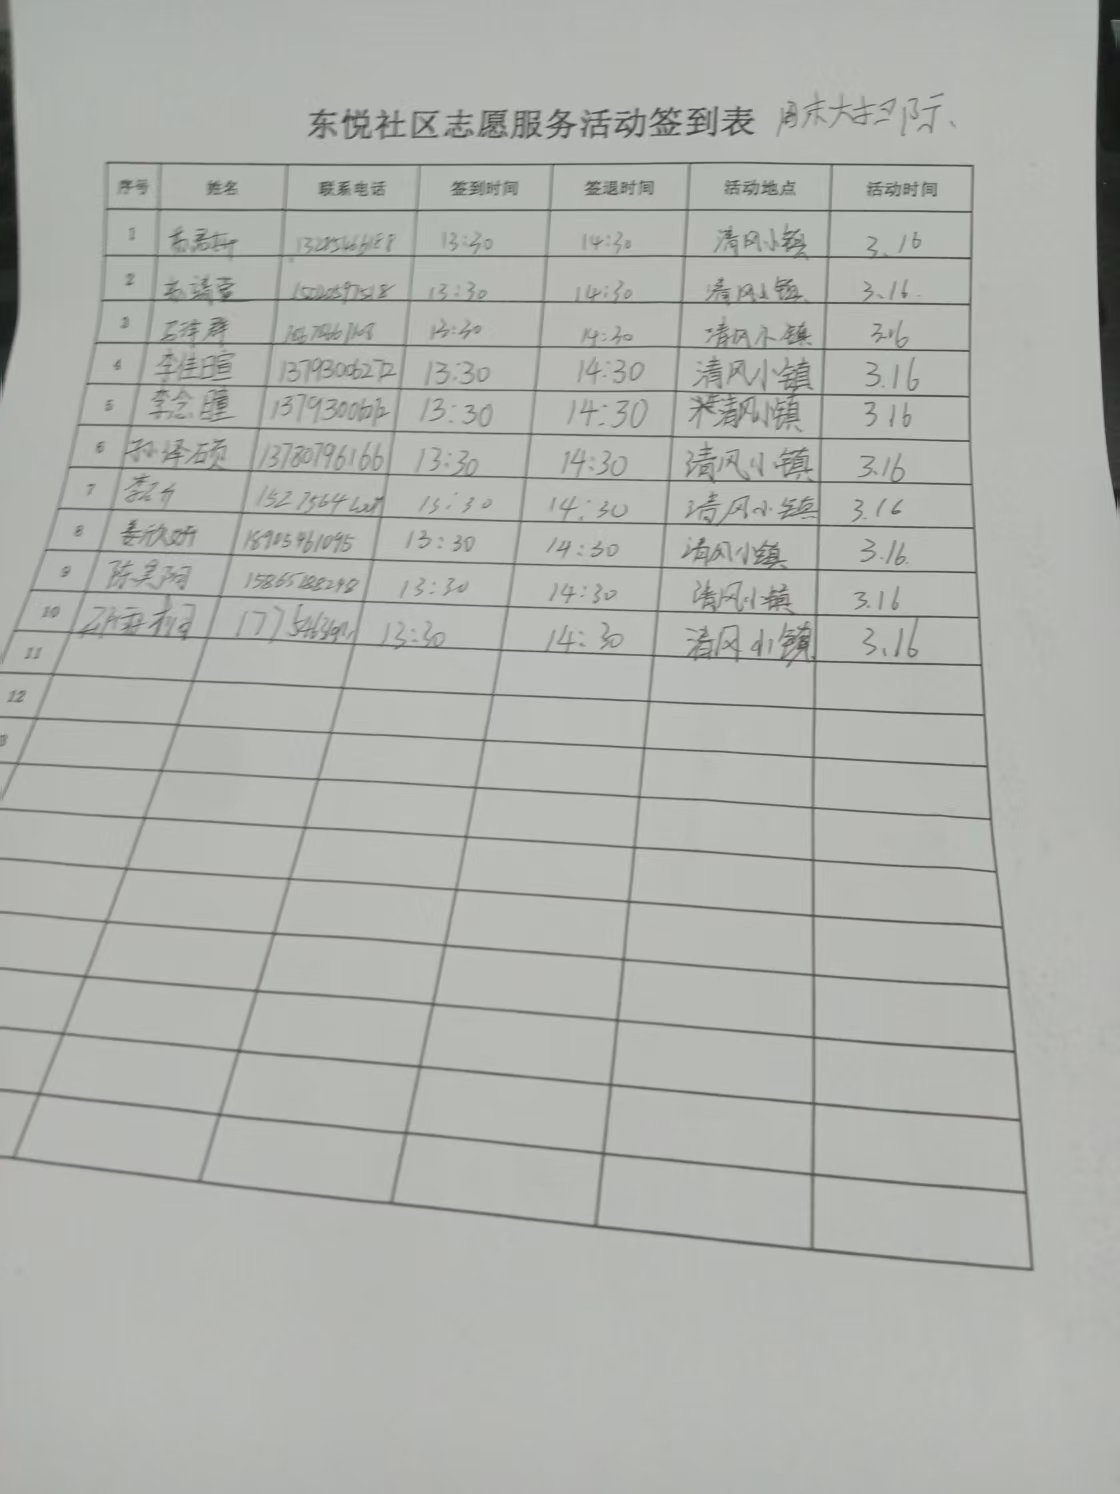 东悦社区志愿服务活动签到表 周末大扫除、
序号 姓名 联系电话 签到时间 签退时间 活动地点 活动时间
1 13:30 14:30 清风小镇 3.16
2 13:30 14:30 清风小镇 3.16.
3 13:30 14:30 清风小镇 3.16
4 李佳暄 13793006272 13:30 14:30 清风小镇 3.16
5 李念瞳 13:30 14:30 清风小镇 3.16
6 孙泽硕 13780796166 13:30 14:30 清风小镇 3.16
7 13:30 14:30 清风小镇 3.16
8 姜欣妍 18905461095 13:30 14:30 清风小镇 3.16.
9 15865188248 13:30 14:30 清风小镇 3.16
10 13:30 14:30 清风小镇 3.16
11
12